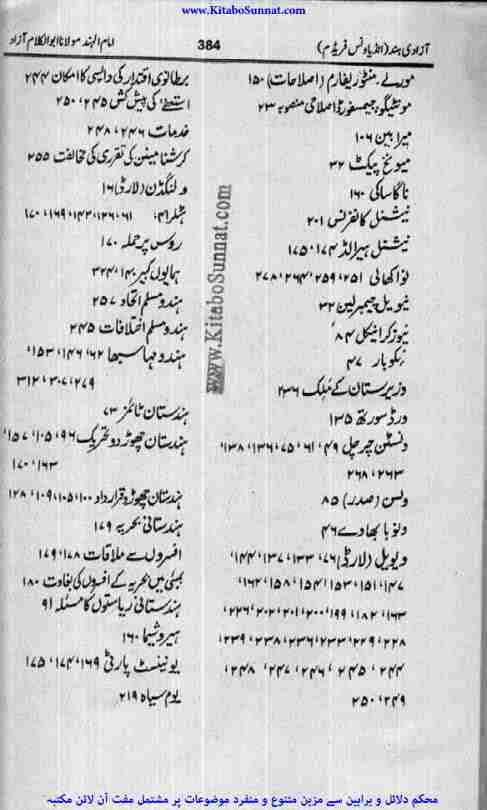 www.KitaboSunnat.com
آزادی ہند (انڈیا ونس فریڈم)
384
امام الہند مولانا ابوالکلام آزاد
مورلے منٹو ریفارم (اصلاحات) ۱۵۰
مونٹیگو چیمسفورڈ اصلاحی منصوبہ ۲۳
میرا بین ۱۰۶
میونخ پیکٹ ۳۲
ناگاساکی ۱۶۰
نیشنل کانفرنس ۲۰۱
نیشنل ہیرالڈ ۱۷۴، ۱۷۵
نواکھالی ۲۵۱، ۲۵۹، ۲۶۴، ۲۷۸
نیویل چیمبرلین ۳۲
نیوز کرانیکل ۸۴
نکوبار ۴۷
وزیرستان کے مُلک ۲۳۶
ورڈسورتھ ۱۳۵
ونسٹن چرچل ۴۹، ۶۱، ۷۵، ۱۳۶، ۱۳۸،
۲۶۳، ۲۶۸
ولسن (صدر) ۸۵
ونوبا بھاوے ۴۶
ویویل (لارڈ) ۷۶، ۱۳۳، ۱۳۷، ۱۴۴،
۱۴۷، ۱۵۱، ۱۵۳، ۱۵۴، ۱۵۸، ۱۶۲،
۱۶۳، ۱۸۲، ۱۹۹، ۲۰۰، ۲۰۱، ۲۰۲، ۲۲۶،
۲۲۸، ۲۲۹، ۲۳۳، ۲۳۶، ۲۳۸، ۲۳۹،
۲۴۴، ۲۴۵، ۲۴۶، ۲۴۷، ۲۴۸،
۲۴۹، ۲۵۰
برطانوی اقتدار کی واپسی کا امکان ۲۴۴
استعفےٰ کی پیش کش ۲۴۵، ۲۵۰
خدمات ۲۴۶، ۲۴۸
کرشنا مینن کی تقرری کی مخالفت ۲۵۵
ولنگڈن (لارڈ) ۱۶
ہٹلر ۶۱، ۱۲۶، ۱۴۲، ۱۶۹، ۱۷۰
روس پر حملہ ۱۷۰
ہمایوں کبیر ۱۴، ۳۲۴
ہندو مسلم اتحاد ۲۵۷
ہندو مسلم اختلافات ۲۴۵
ہندو مہا سبھا ۶۲، ۱۴۶، ۱۵۳،
۲۷۹، ۳۰۷، ۳۱۲
ہندستان ٹائمز ۷۳
ہندستان چھوڑ دو تحریک ۹۶، ۱۰۵، ۱۵۷،
۱۶۳، ۱۷۰
ہندستان چھوڑو قرارداد ۱۰۰، ۱۰۵، ۱۰۹، ۱۲۸
ہندستانی بحریہ ۱۷۹
افسروں سے ملاقات ۱۷۸، ۱۷۹
بمبئی میں بحریہ کے افسروں کی بغاوت ۱۸۰
ہندستانی ریاستوں کا مسئلہ ۹۱
ہیروشیما ۱۶۰
یونینسٹ پارٹی ۱۶۹، ۱۷۴، ۱۷۵
یوم سیاہ ۲۱۹
www.KitaboSunnat.com
محکم دلائل و براہین سے مزین متنوع و منفرد موضوعات پر مشتمل مفت آن لائن مکتبہ